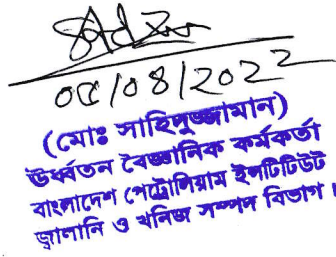 ০৫/০৪/২০২২
(মোঃ সাহিদুজ্জামান)
ঊর্ধ্বতন বৈজ্ঞানিক কর্মকর্তা
বাংলাদেশ পেট্রোলিয়াম ইন্সটিটিউট
জ্বালানি ও খনিজ সম্পদ বিভাগ।